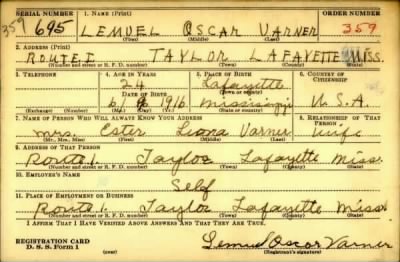 SERIAL NUMBER 1. NAME (Print) ORDER NUMBER
359 695 LEMUEL OSCAR VARNER 359
(First) (Middle) (Last)
2. ADDRESS (Print)
ROUTE.I TAYLOR LAFAYETTE MISS.
(Number and street or R. F. D. number) (Town) (County) (State)
3. TELEPHONE 4. AGE IN YEARS 5. PLACE OF BIRTH 6. COUNTRY OF CITIZENSHIP
24 Lafayette
DATE OF BIRTH (Town or county)
6/ 1916 Mississippi U.S.A.
(Exchange) (Number) (Mo.) (Day) (Yr.) (State or country)
7. NAME OF PERSON WHO WILL ALWAYS KNOW YOUR ADDRESS 8. RELATIONSHIP OF THAT PERSON
Mrs. Ester Leona Varner Wife
(Mr., Mrs., Miss) (First) (Middle) (Last)
9. ADDRESS OF THAT PERSON
Route 1. Taylor Lafayette Miss.
(Number and street or R. F. D. number) (Town) (County) (State)
10. EMPLOYER'S NAME
Self
11. PLACE OF EMPLOYMENT OR BUSINESS
Route 1. Taylor Lafayette Miss.
(Number and street or R. F. D. number) (Town) (County) (State)
I AFFIRM THAT I HAVE VERIFIED ABOVE ANSWERS AND THAT THEY ARE TRUE.
REGISTRATION CARD
D. S. S. Form 1 Lemuel Oscar Varner
(over) (Registrant's signature)